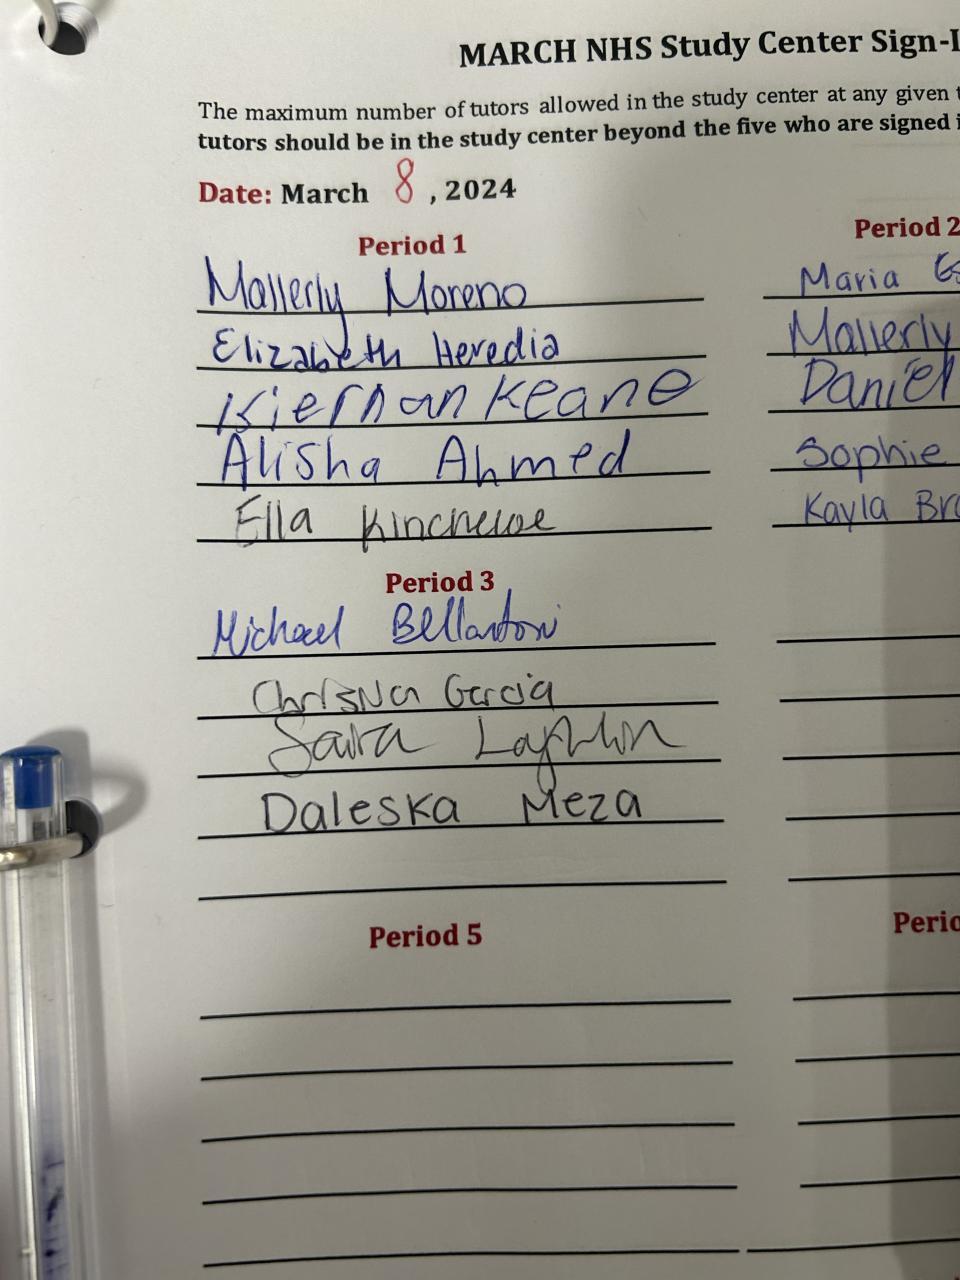 MARCH NHS Study Center Sign-I
The maximum number of tutors allowed in the study center at any given t
tutors should be in the study center beyond the five who are signed i
Date: March 8, 2024
Period 1
Mallerly Moreno
Elizabeth Heredia
Kiernan Keane
Alisha Ahmed
Ella Kincheloe
Period 2
Maria Es
Mallerly
Daniel
Sophie
Kayla Bro
Period 3
Michael Bellantoni
Christina Garcia
Saira Laghlin
Daleska Meza
Period 5
Perio